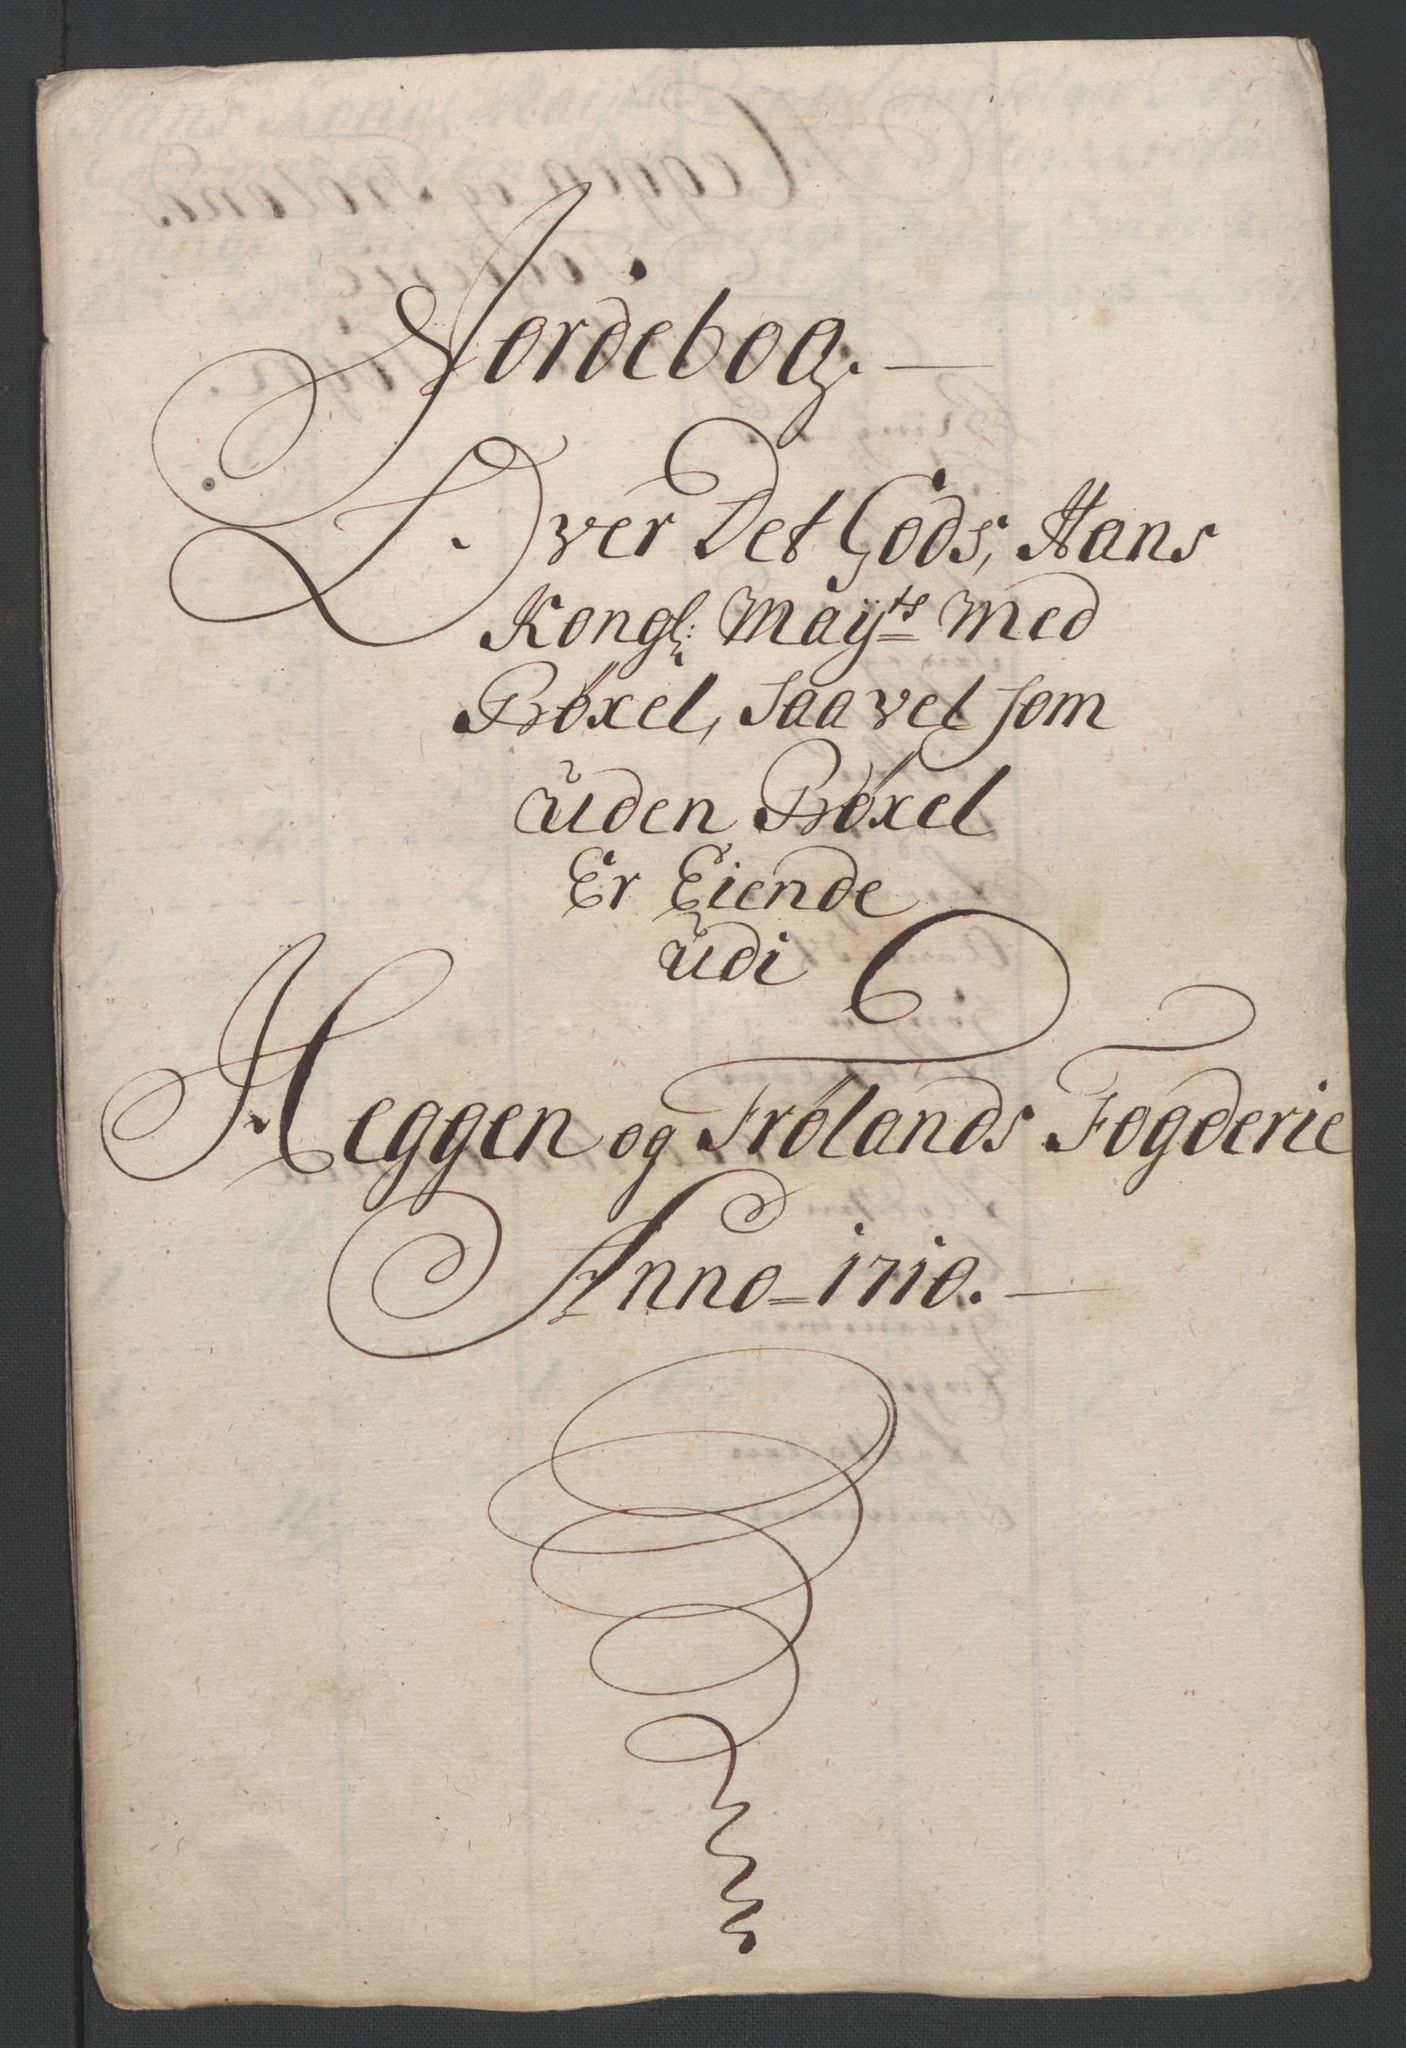 Jordebog.
Over Det Gods, Hans
Kongl: Maÿ:ts Med
Bøxel, saavel som
uden Bøxel
Er Eiende
udi
Heggen og Frølands Fogderie
Anno 1710.